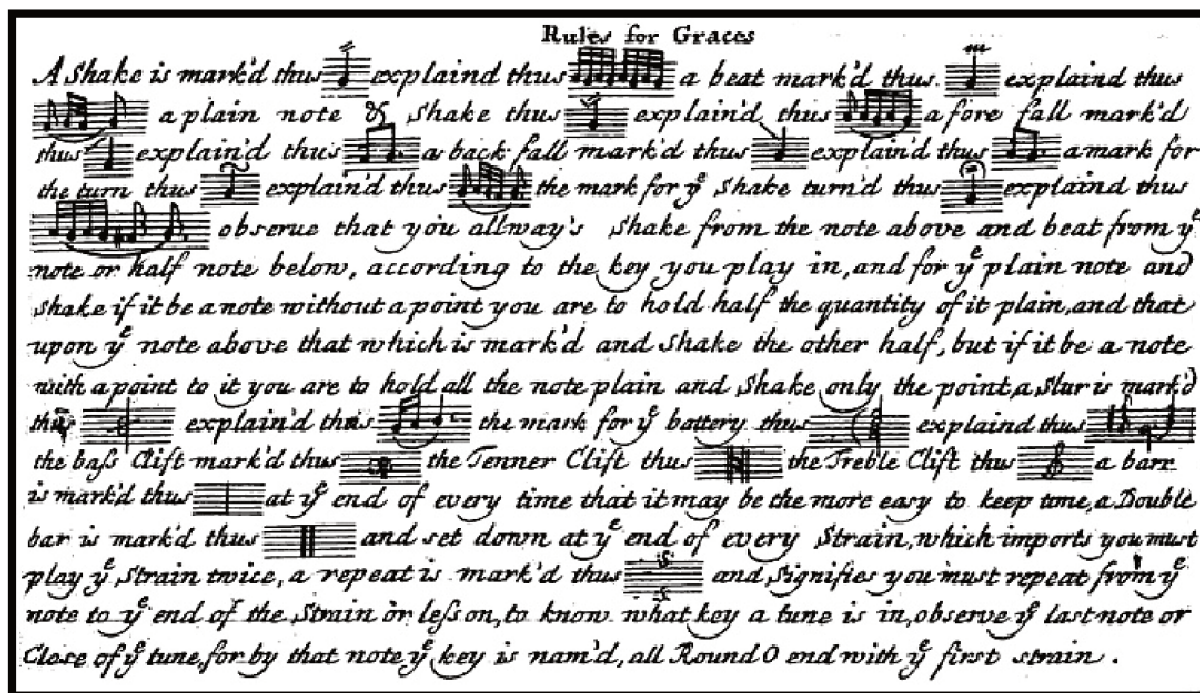 Rules for Graces
A Shake is mark'd thus explaind thus a beat mark'd thus. explaind thus
a plain note & Shake thus explain'd thus a fore fall mark'd
thus explain'd thus a back fall mark'd thus explain'd thus a mark for
the turn thus explain'd thus the mark for yͤ Shake turn'd thus explaind thus
observe that you allway's Shake from the note above and beat from yͤ
note or half note below, according to the key you play in, and for yͤ plain note and
shake if it be a note without a point you are to hold half the quantity of it plain, and that
upon yͤ note above that which is mark'd and Shake the other half, but if it be a note
with a point to it you are to hold all the note plain and Shake only the point, a Slur is mark'd
thus explain'd thus the mark for yͤ battery thus explaind thus
the baſs Clift mark'd thus the Tenner Clift thus the Treble Clift thus a barr
is mark'd thus at yͤ end of every time that it may be the more easy to keep time, a Double
bar is mark'd thus and set down at yͤ end of every Strain, which imports you must
play yͤ Strain twice, a repeat is mark'd thus :S: and Signifies you must repeat from yͤ
note to yͤ end of the Strain or leſson, to know what key a tune is in, observe yͤ last note or
Close of yͤ tune, for by that note yͤ key is nam'd, all Round O end with yͤ first strain.